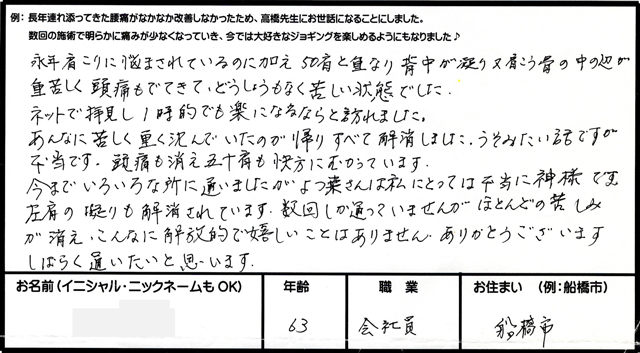 例：長年連れ添ってきた腰痛がなかなか改善しなかったため、高橋先生にお世話になることにしました。
数回の施術で明らかに痛みが少なくなっていき、今では大好きなジョギングを楽しめるようにもなりました♪
永年肩こりに悩まされているのに加え 50肩と重なり 背中が凝り 又肩こう骨の中の辺が
重苦しく 頭痛もでてきて、どうしようもなく苦しい状態でした。
ネットで拝見し 1時的でも楽になるならと訪れました。
あんなに苦しく重く沈んでいたのが帰りすべて解消しました、うそみたい話ですが
本当です、頭痛も消え五十肩も快方にむかっています。
今までいろいろな所に通いましたがよつ葉さんは私にとっては本当に神様です
左肩の凝りも解消されています、数回しか通っていませんがほとんどの苦しみ
が消え、こんなに解放的で嬉しいことはありません、ありがとうございます
しばらく通いたいと思います。
お名前（イニシャル・ニックネームもOK） 年齢 職業 お住まい （例：船橋市）
63 会社員 船橋市